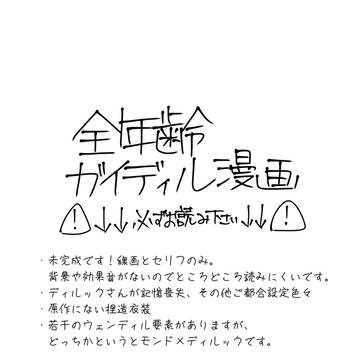 全年齢
ガイディル漫画
！↓↓必ずお読み下さい↓↓！
・未完成です！線画とセリフのみ。
背景や効果音がないのでところどころ読みにくいです。
・ディルックさんが記憶喪失、その他ご都合設定色々
・原作にない捏造衣装
・若干のウェンディル要素がありますが、
どっちかというとモンド×ディルックです。